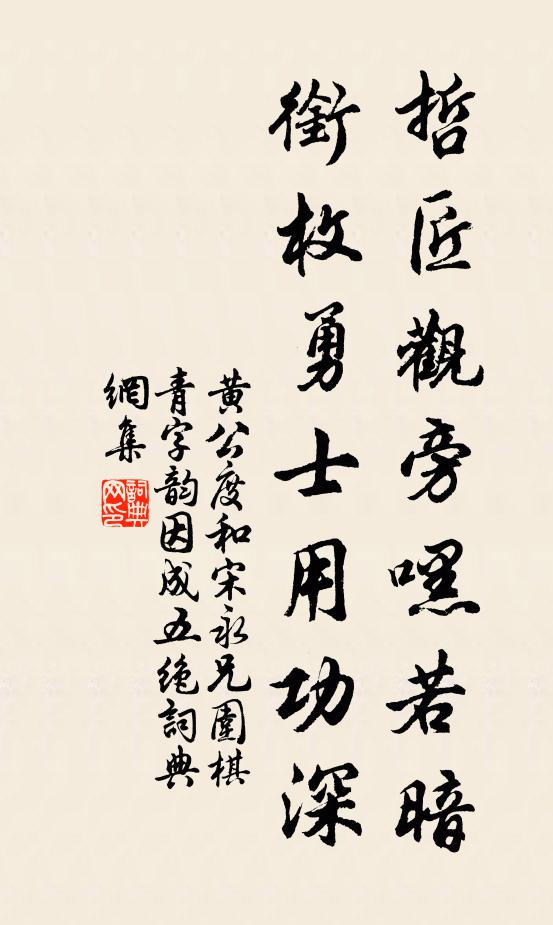 哲匠觀旁嘿若暗
銜枚勇士用功深
黃公度和宋永兄圍棋
青字韵因成五绝詞典
網集
詞典網印